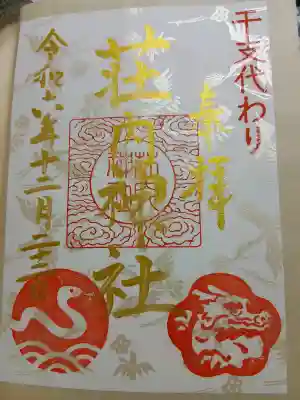 干支代わり
奉拝
荘内神社
令和六年十二月二三日